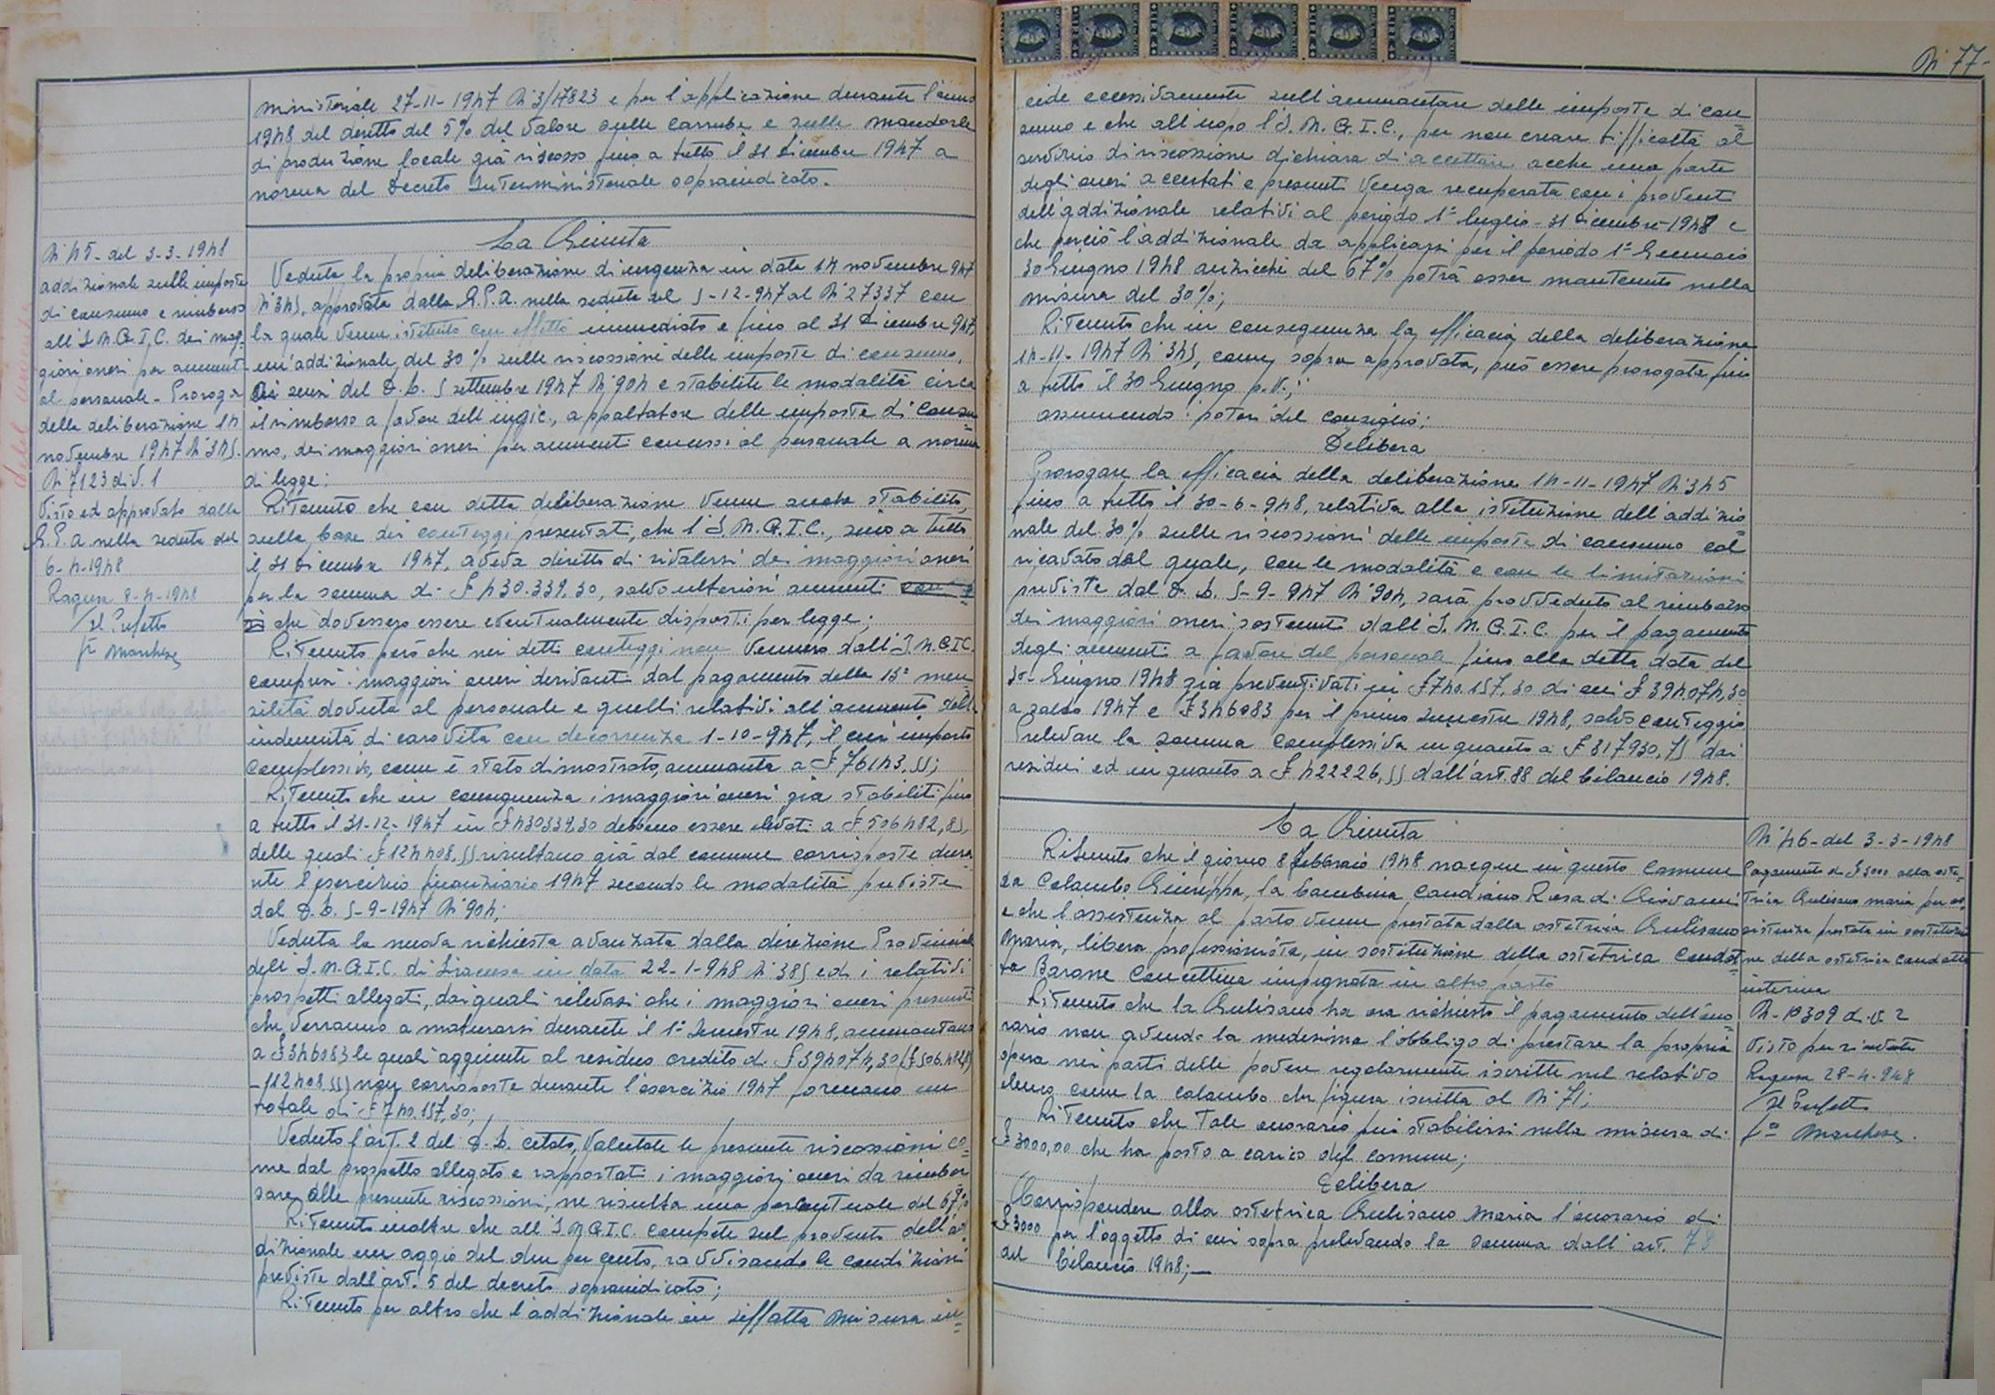 N° 77-
ministeriale 27-11-1947 N° 3/17823 e per l'applicazione durante l'anno
1948 del diritto del 5% del valore sulle carrube e sulle mandorle
di produzione locale già riscosso fino a tutto il 31 dicembre 1947 a
norma del Decreto Interministeriale sopraindicato.
N° 45- del 3-3-1948
addizionale sulle imposte
di consumo e rimborso
all'I.N.G.I.C. dei mag-
giori oneri per aumenti
al personale - Proroga
della deliberazione 14
novembre 1947 N° 345.
N° 7123 div. 1
Visto ed approvato dalla
G.P.A. nella seduta del
6-4-1948
Ragusa 8-4-1948
Il Prefetto
La Giunta
Veduta la propria deliberazione di urgenza in data 14 novembre 947
N° 345, approvata dalla G.P.A. nella seduta del 5-12-947 al N° 27337 con
la quale venne istituita con effetto immediato e fino al 31 dicembre 947,
un'addizionale del 30% sulle riscossioni delle imposte di consumo,
ai sensi del D.L. 5 settembre 1947 N° 904 e stabilite le modalità circa
il rimborso a favore dell'ingic, appaltatore delle imposte di consu-
mo, dei maggiori oneri per aumenti concessi al personale a norma
di legge;
Ritenuto che con detta deliberazione venne anche stabilito,
sulla base dei conteggi presentati, che l'I.N.G.I.C., sino a tutto
il 31 dicembre 1947, aveva diritto di rivalersi dei maggiori oneri
per la somma di £ 430.339.30, salvo ulteriori aumenti
che dovessero essere eventualmente disposti per legge;
Ritenuto però che nei detti conteggi non vennero dall'I.N.G.I.C.
compresi i maggiori oneri derivanti dal pagamento della 13ª men-
silità dovuta al personale e quelli relativi all'aumento dell'
indennità di carovita con decorrenza 1-10-947, il cui importo
complessivo, come è stato dimostrato, ammonta a £ 76143,55;
Ritenuto che in conseguenza i maggiori oneri già stabiliti fino
a tutto il 31-12-1947 in £ 430339.30 debbono essere elevati a £ 506482,85,
delle quali £ 112408.55 risultano già dal comune corrisposte dura-
nte l'esercizio finanziario 1947 secondo le modalità previste
dal D.L. 5-9-1947 N° 904;
Veduta la nuova richiesta avanzata dalla direzione Provinciale
dell'I.N.G.I.C. di Siracusa in data 22-1-948 N° 385 ed i relativi
prospetti allegati, dai quali rilevasi che i maggiori oneri presunti
che verranno a maturarsi durante il 1° Semestre 1948, ammontano
a £ 346083 le quali aggiunte al residuo credito di £ 394074,30 (£ 506.482.85
- 112408.55) non corrisposte durante l'esercizio 1947 formano un
totale di £ 740.157,30;
Veduto l'art. 2 del D.L. citato, valutate le presunte riscossioni co-
me dal prospetto allegato e rapportati i maggiori oneri da rimbor-
sare alle presunte riscossioni, ne risulta una percentuale del 67%
Ritenuto inoltre che all'I.N.G.I.C. compete sul provento dell'ad-
dizionale un aggio del due per cento, ravvisando le condizioni
previste dall'art. 5 del decreto sopraindicato;
Ritenuto per altro che l'addizionale in siffatta misura in-
cide eccessivamente sull'ammontare delle imposte di con-
sumo e che all'uopo l'I.N.G.I.C., per non creare difficoltà al
servizio di riscossione dichiara di accettare acche una parte
degli oneri accertati e presunti venga recuperata con i proventi
dell'addizionale relativi al periodo 1° luglio - 31 dicembre 1948 e
che perciò l'addizionale da applicarsi per il periodo 1° Gennaio
30 Giugno 1948 anzicchè del 67% potrà esser mantenuto nella
misura del 30%;
Ritenuto che in conseguenza la efficacia della deliberazione
14-11-1947 N° 345, come sopra approvata, può essere prorogata fino
a tutto il 30 Giugno p.v.;
assumendo i poteri del consiglio;
Delibera
Prorogare la efficacia della deliberazione 14-11-1947 N° 345
fino a tutto il 30-6-948, relativa alla istituzione dell'addizio-
nale del 30% sulle riscossioni delle imposte di consumo col
ricavato dal quale, con le modalità e con le limitazioni
previste dal D.L. 5-9-947 N° 904, sarà provveduto al rimborso
dei maggiori oneri sostenuti dall'I.N.G.I.C. per il pagamento
degli aumenti a favore del personale fino alla detta data del
30 Giugno 1948 già preventivati in £ 740.157,30 di cui £ 394074,30
a saldo 1947 e £ 346083 per il primo semestre 1948, salvo conteggio
Prelevare la somma complessiva in quanto a £ 317930,75 dai
residui ed in quanto a £ 422226,55 dall'art. 88 del bilancio 1948.
La Giunta
Ritenuto che il giorno 8 febbraio 1948 nacque in questo Comune
da Colombo Giuseppa, la bambina Candiano Rosa di Giovanni
e che l'assistenza al parto venne prestata dalla ostetrica Gulisano
Maria, libera professionista, in sostituzione della ostetrica Condot-
ta Barone Concettina impegnata in altro parto
Ritenuto che la Gulisano ha ora richiesto il pagamento dell'ono-
rario non avendo la medesima l'obbligo di prestare la propria
opera nei parti delle povere regolarmente iscritte nel relativo
elenco, come la Colombo che figura iscritta al N° 71;
Ritenuto che tale onorario può stabilirsi nella misura di
£ 3000,00 che ha posto a carico del comune;
Delibera
Corrispondere alla ostetrica Gulisano Maria l'onorario di
£ 3000 per l'oggetto di cui sopra prelevando la somma dall'art. 78
del bilancio 1948;—
N° 46- del 3-3-1948
Pagamento di £ 3000 alla oste-
trica Gulisano Maria per as-
sistenza prestata in sostituzio-
ne della ostetrica condotta
interina
N- 10309 div 2
Visto per ricevuta
Ragusa 28-4-948
Il Prefetto